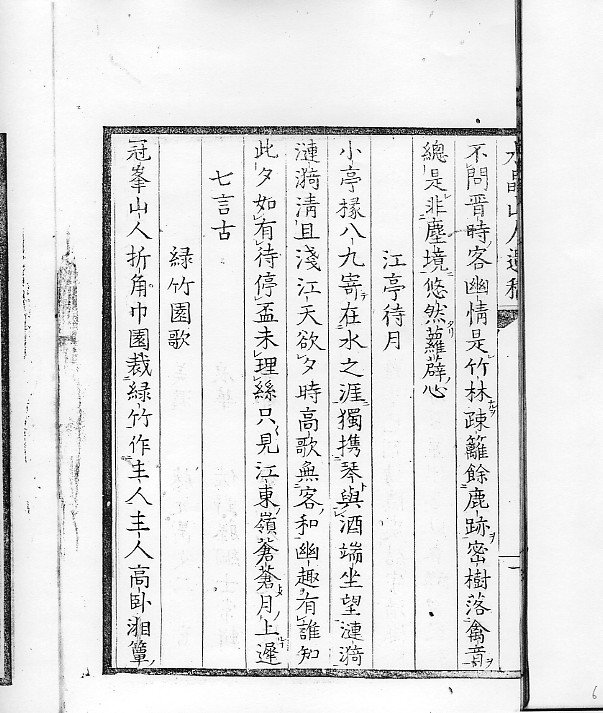 不問晋時客幽情是竹林疎籬餘鹿跡密樹落禽音
總是非塵境悠然蘿薜心
江亭待月
小亭椽八九寄在水之涯獨携琴與酒端坐望漣漪
漣漪淸且淺江天欲夕時高歌無客和幽趣有誰知
此夕如有待停盃未理絲只見江東嶺蒼蒼月上遲
七言古
緑竹園歌
冠峯山人折角巾園裁緑竹作主人主人高卧湘簟
6